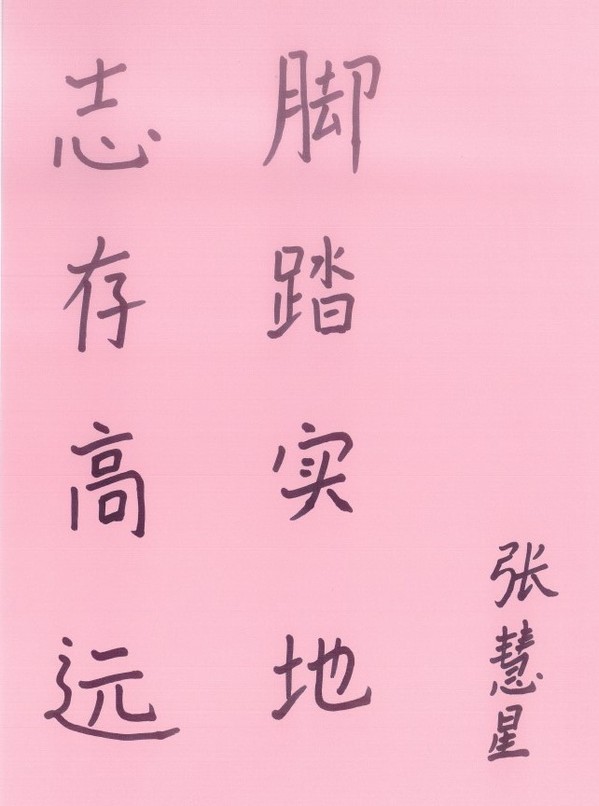 志存高远
脚踏实地
张慧星